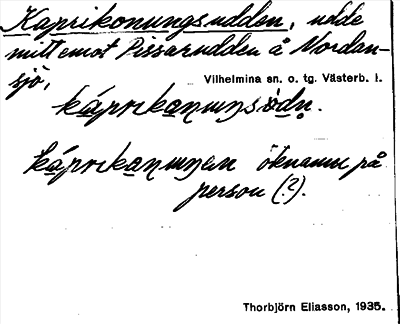 Kaprikonungsudden, udde
mitt emot Pissarudden å Nordan-
sjö,
Vilhelmina sn. o. tg. Västerb. l.
káprikanuŋsùdn̥.
káprikanuŋen öknamn på
person (?).
Thorbjörn Eliasson, 1935.